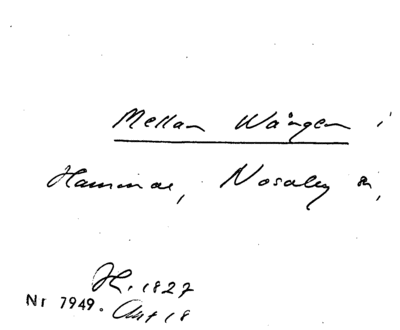 Mellan Wången i
Hammar, Nosaby sn,
H. 1827
Nr 7949. Akt 18